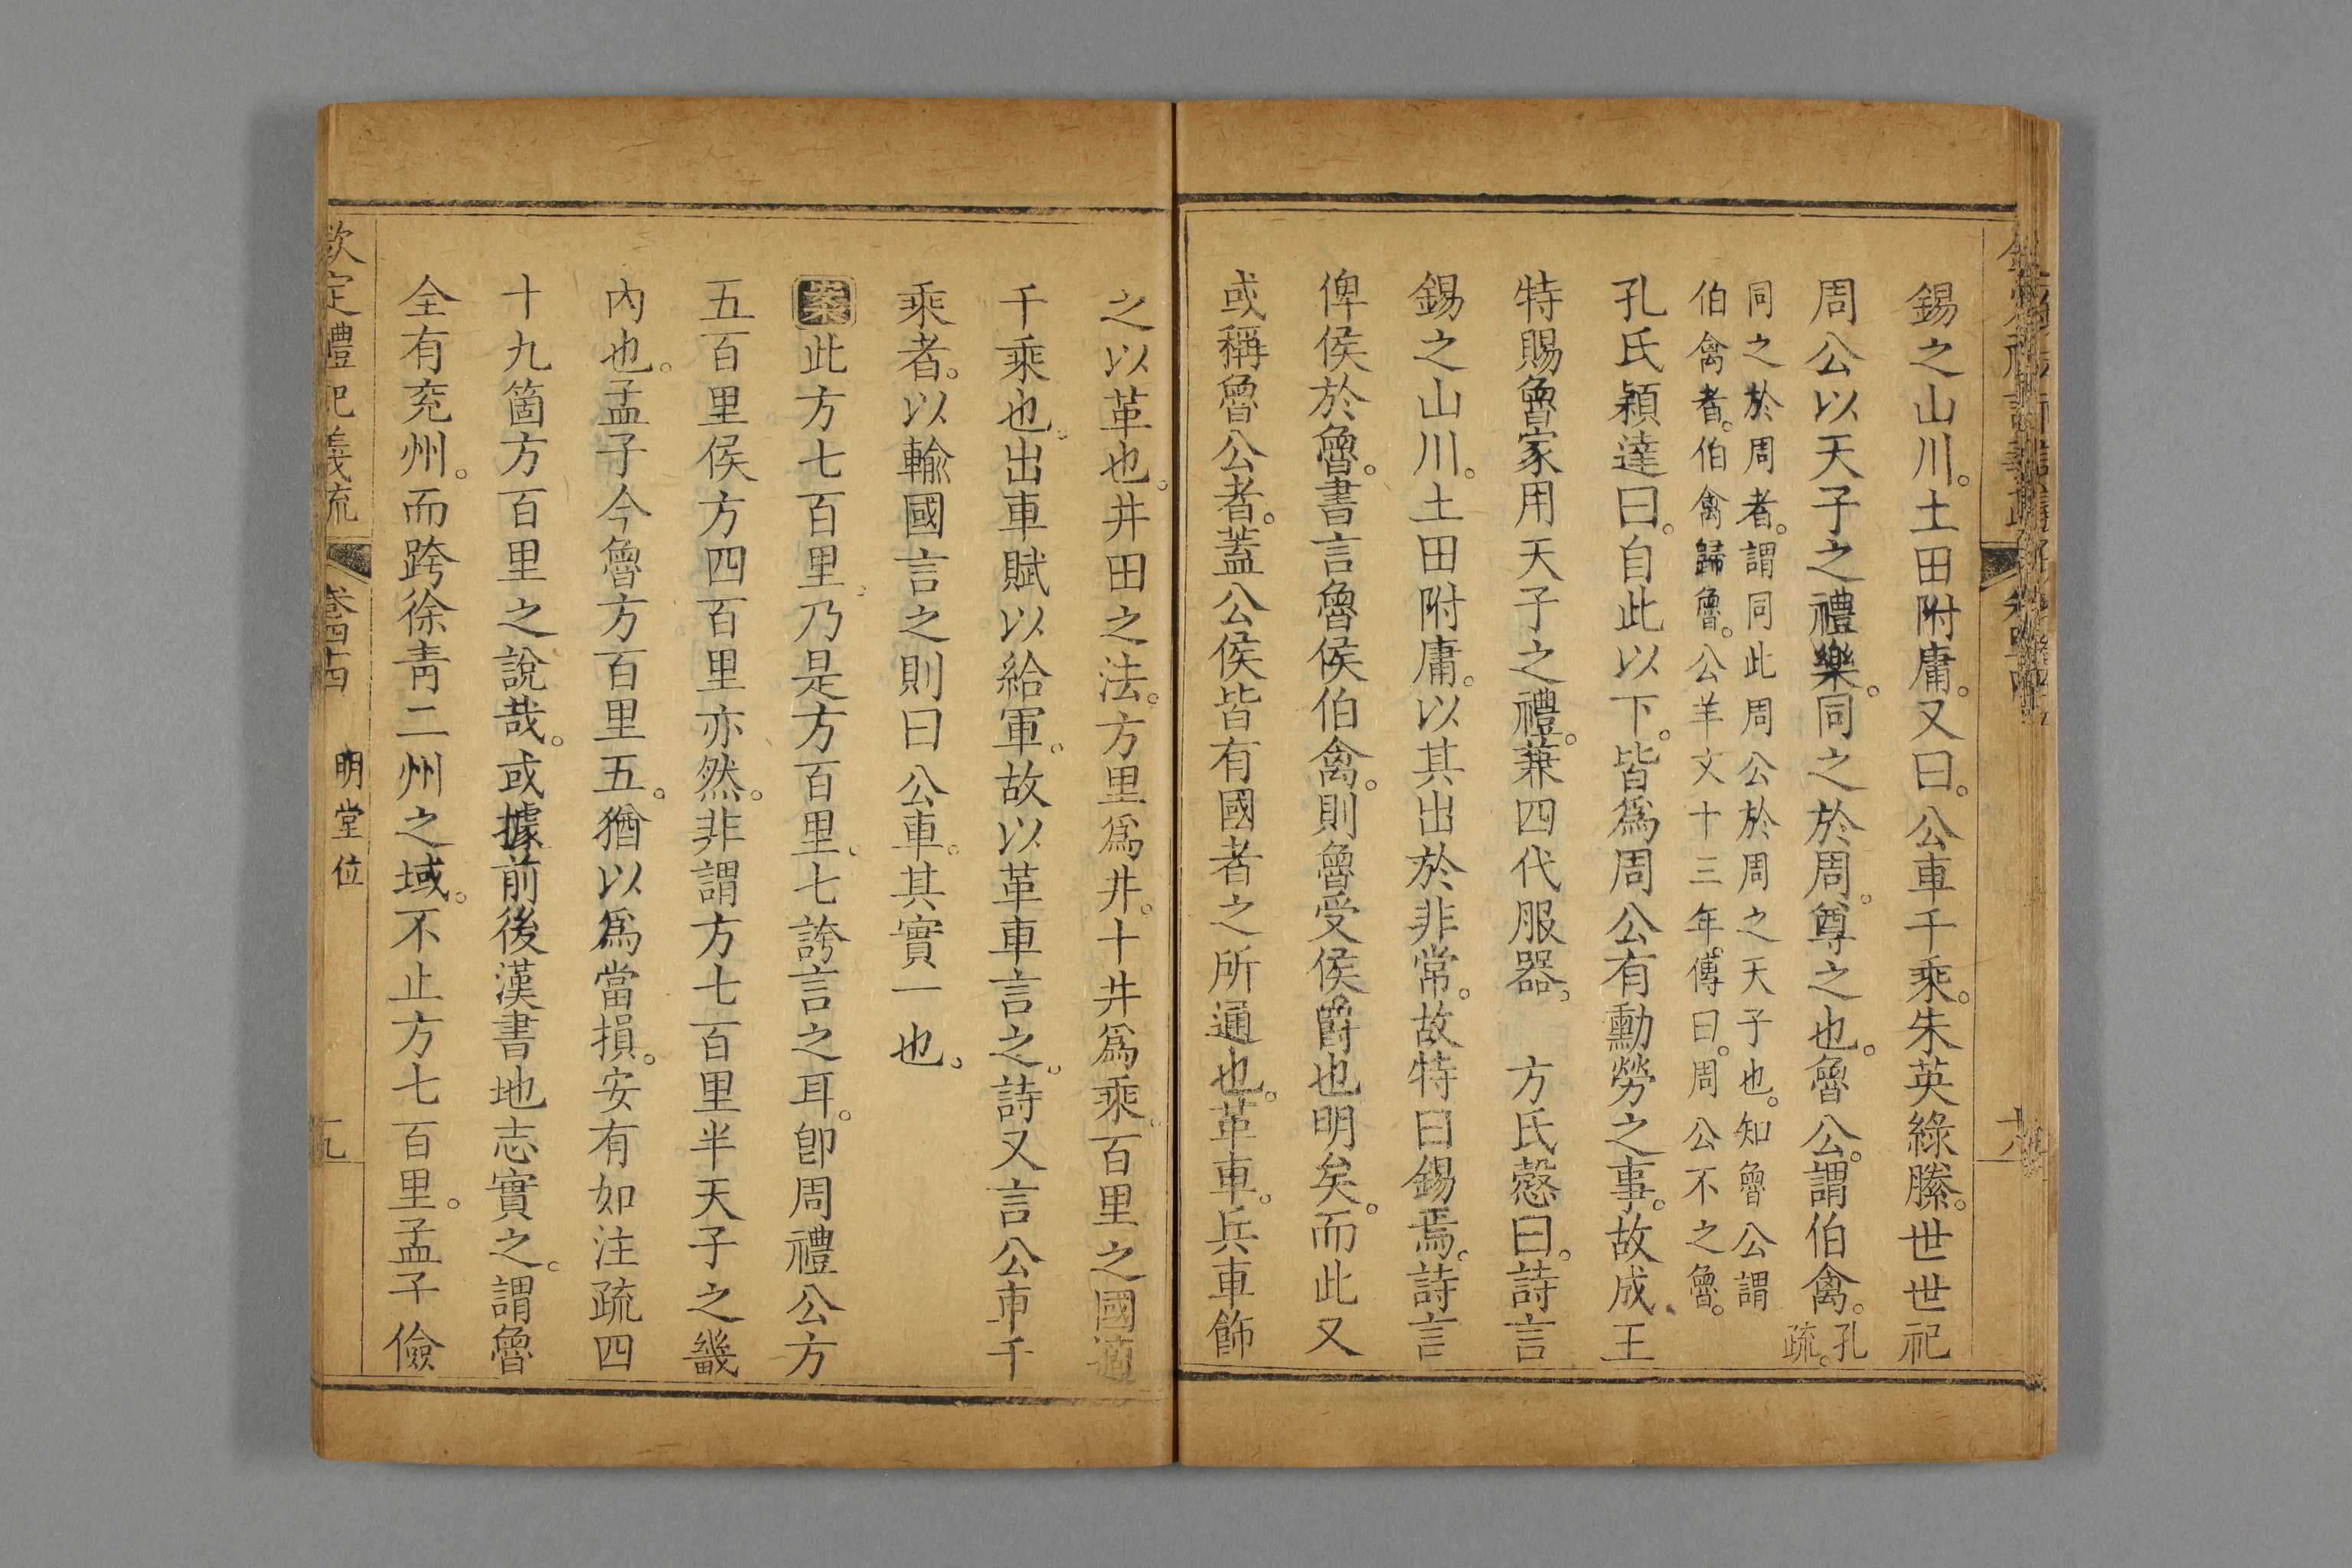 錫之山川。土田附庸。又曰。公車千乘。朱英綠縢。世世祀
周公以天子之禮樂。同之於周。尊之也。魯公。謂伯禽。孔疏。
同之於周者。謂同此周公於周之天子也。知魯公謂
伯禽者。伯禽歸魯。公羊文十三年。傳曰。周公不之魯。
孔氏穎達曰。自此以下。皆爲周公有勳勞之事。故成王
特賜魯家用天子之禮。蒹四代服器。 方氏慤曰。詩言
錫之山川。土田附庸。以其出於非常。故特曰錫焉。詩言
俾侯於魯。書言魯侯伯禽。則魯受侯爵也明矣。而此又
或稱魯公者。蓋公侯皆有國者之所通也。革車。兵車飾
之以革也。井田之法。方里爲井。十井爲乘。百里之國適
千乘也。出車賦以給軍。故以革車言之。詩又言公車千
乘者。以輸國言之則曰公車。其實一也。
案此方七百里。乃是方百里。七誇言之耳。卽周禮公方
五百里侯方四百里亦然。非謂方七百里半天子之畿
內也。孟子今魯方百里五。猶以爲當損。安有如注疏四
十九箇方百里之說哉。或據前後漢書地志實之。謂魯
全有兗州。而跨徐青二州之域。不止方七百里。孟子儉
欽定禮記義疏 卷四十四 明堂位